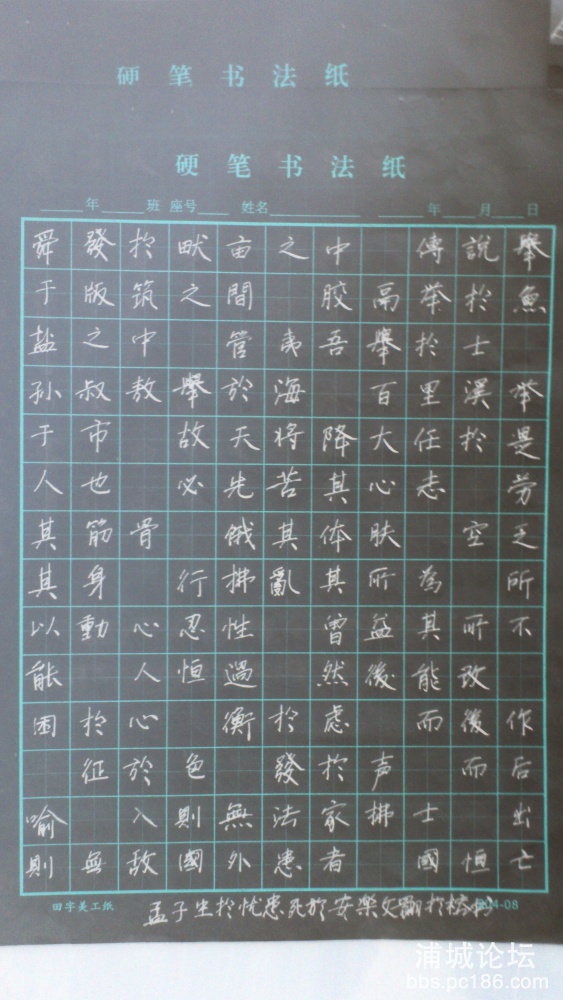 硬笔书法纸
硬笔书法纸
年 班 座号 姓名 年 月 日
舜發於畎亩之中 傅說舉
于版筑之間 胶鬲举於魚
盐之中 管夷吾舉於士
孙叔敖舉於海 百里溪举
于市 故天将降大任於是
人也 必先苦其心志 劳
其筋骨 饿其体肤 空乏
其身 行拂亂其所為 所
以動心忍性 曾益其所不
能 人恒過 然後能改
困於心 衡於虑 而後作
征於色 發於声 而后
喻 入則無法家拂士 出
則無敌國外患者 國恒亡
孟子生於忧患死於安樂文
田字美工纸 04-08
浦城论坛
bbs.pc186.com